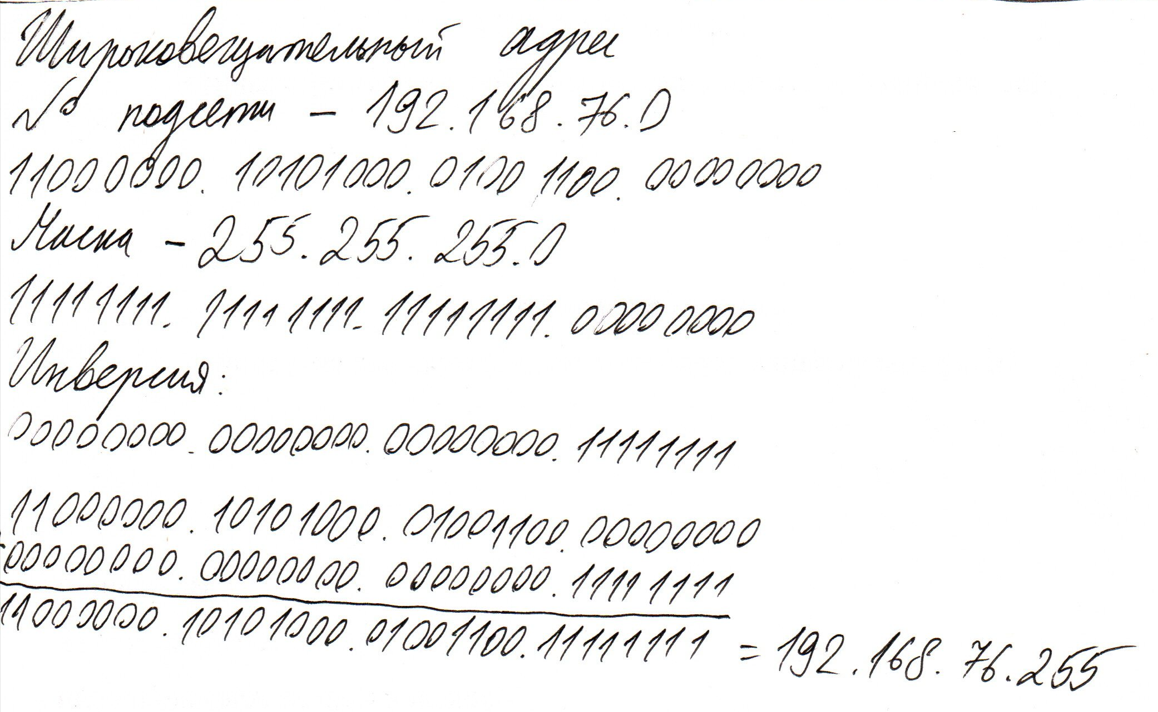 Широковещательный адрес
№ подсети – 192.168.76.0
11000000. 10101000. 0100 1100. 00000000
Маска – 255.255.255.0
11111111. 11111111. 11111111. 00000000
Инверсия:
00000000. 00000000. 00000000. 11111111
11000000. 10101000. 01001100. 00000000
00000000. 00000000. 00000000. 11111111
11000000. 10101000. 01001100. 11111111 = 192.168.76.255